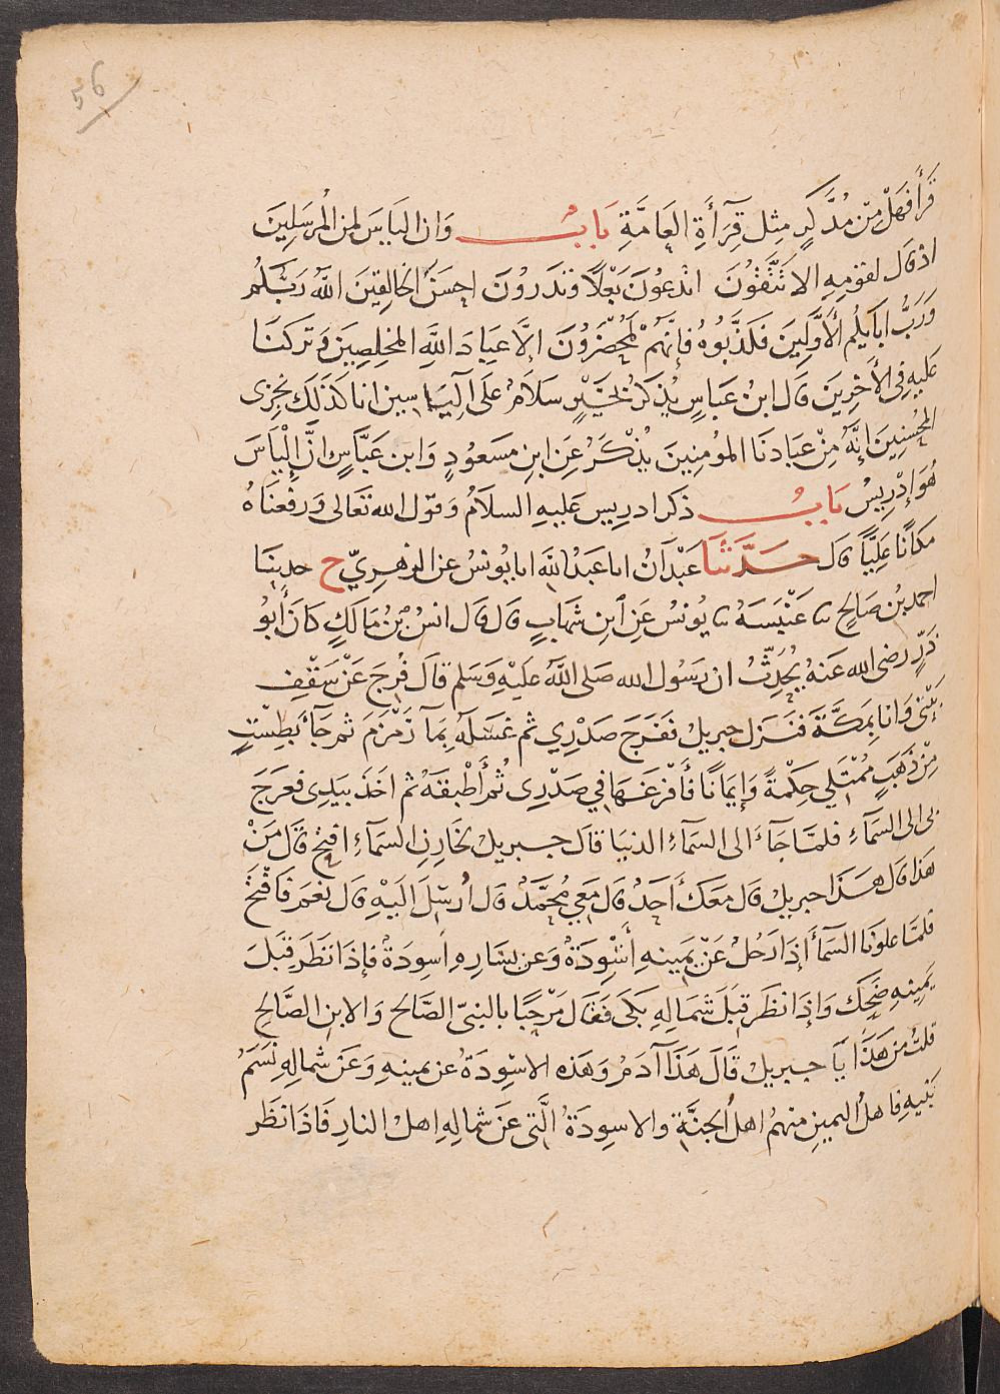 56
قَرَأَ فَهَلْ مِنْ مُدَّكِرٍ مِثل قِرَأَةِ العَامَّةِ بَابُ وَان اليَاسَ لمن المُرسَلِينَ
اذ قال لقومِهِ الا تَتَّقُونَ اتدعُونَ بَعْلًا وَتذَرونَ احسَنَ الخَالِقِينَ اللّهُ رَبُّكُم
وَرَبُّ ابَايكُم الأَوَّلِينَ فَكذَّبُوهُ فإنَّهُمْ لَمُحْضَرُونَ إلَّا عِبَادَ اللَّهِ المخلِصِينَ وَتَركنَا
عَليهِ فى الأَخِرِينَ قَال ابنُ عَبَّاسٍ يُذكَرُ بِخَيْرٍ سَلَامٌ عَلَى آلِ يَاسين انا كَذَلِكَ نَجْزِى
المحْسِنِينَ إنَّهُ مِنْ عبَادنَا المؤمِنِينَ يُذْكَرُ عَنِ ابنِ مَسعُودٍ وَابن عَبَّاسٍ انَّ إِلْيَاسَ
هُوَ إدْرِيسُ بَابُ ذكر ادريس عَليهِ السلَامُ وَقول الله تَعَالى وَرفَعنَاهُ
مكَانًا عَلِيًّا قال حَدَّثنَا عَبْدَانُ انا عَبدُ اللّه انا يونسُ عن الزهرِيّ ح حدثنَا
احمد بن صَالِحٍ نا عَنْبَسَةُ نا يُونسُ عَنِ ابنِ شهَابٍ قَال قَال انسُ بْنُ مَالكٍ كانَ أَبُو
ذَرٍّ رضى الله عَنهُ يُحَدِّثُ ان رَسُول الله صَلى اللّهُ عَليْهِ وَسَلم قالَ فُرِجَ عَنْ سَقْفِ
بَيْتى وَانا بِمَكَّةَ فَنَزَل جبريلُ فَفَرَجَ صَدْرِي ثم غَسَلَهُ بِمَآ زَمْزَمَ ثمر جَآءَ بَطِسْتٍ
مِنْ ذَهَبٍ مُمْتَلِي حِكْمَةً وَإيمَانًا فَأَفرَغَهَا فِي صَدْرِى ثُمَّ أَطْبقَهُ ثم اخَذَ بيَدِى فعَرَجَ
بى الى السَمَآءِ فلمَّا جَآءَ الى السمَآءِ الدنيَا قالَ جبريلُ لخَازِنِ السمَآءِ افتَحْ قَال مَنْ
هَذا قال هَذَا جبريلُ قال مَعَكَ أَحَدٌ قَال مَعِي مُحمَّدٌ قال أُرْسِلَ الَيْهِ قَال نَعَمْ فَافْتَحْ
فلمَّا علَونَا السَمآءَ إذَا رَجُلٌ عَنْ يَمينهِ أَسْوِدَةٌ وَعن يسَارِهِ أسوِدَةٌ فإذَا نَظَرَ قِبَلَ
يَمِينِهِ ضَحِكَ وَإذَا نظَرَ قبَلَ شمَالِهِ بَكَى فَقَال مَرْحَبًا بالنبىّ الصَّالحِ وَالابنِ الصَّالحِ
قلتُ مَن هَذَا يَا جبريلُ قَالَ هَذَا آدَمُ وَهَذه الاسْوِدَةُ عن يمينهِ وَعَن شمالِهِ نَسَمُ
بَنيهِ فاهلُ اليمينِ منهُم اهلُ الجنَّةِ والاسوِدَةُ الَّتى عَنَ شمَالِهِ اهلُ النارِ فَاذا نَظَر